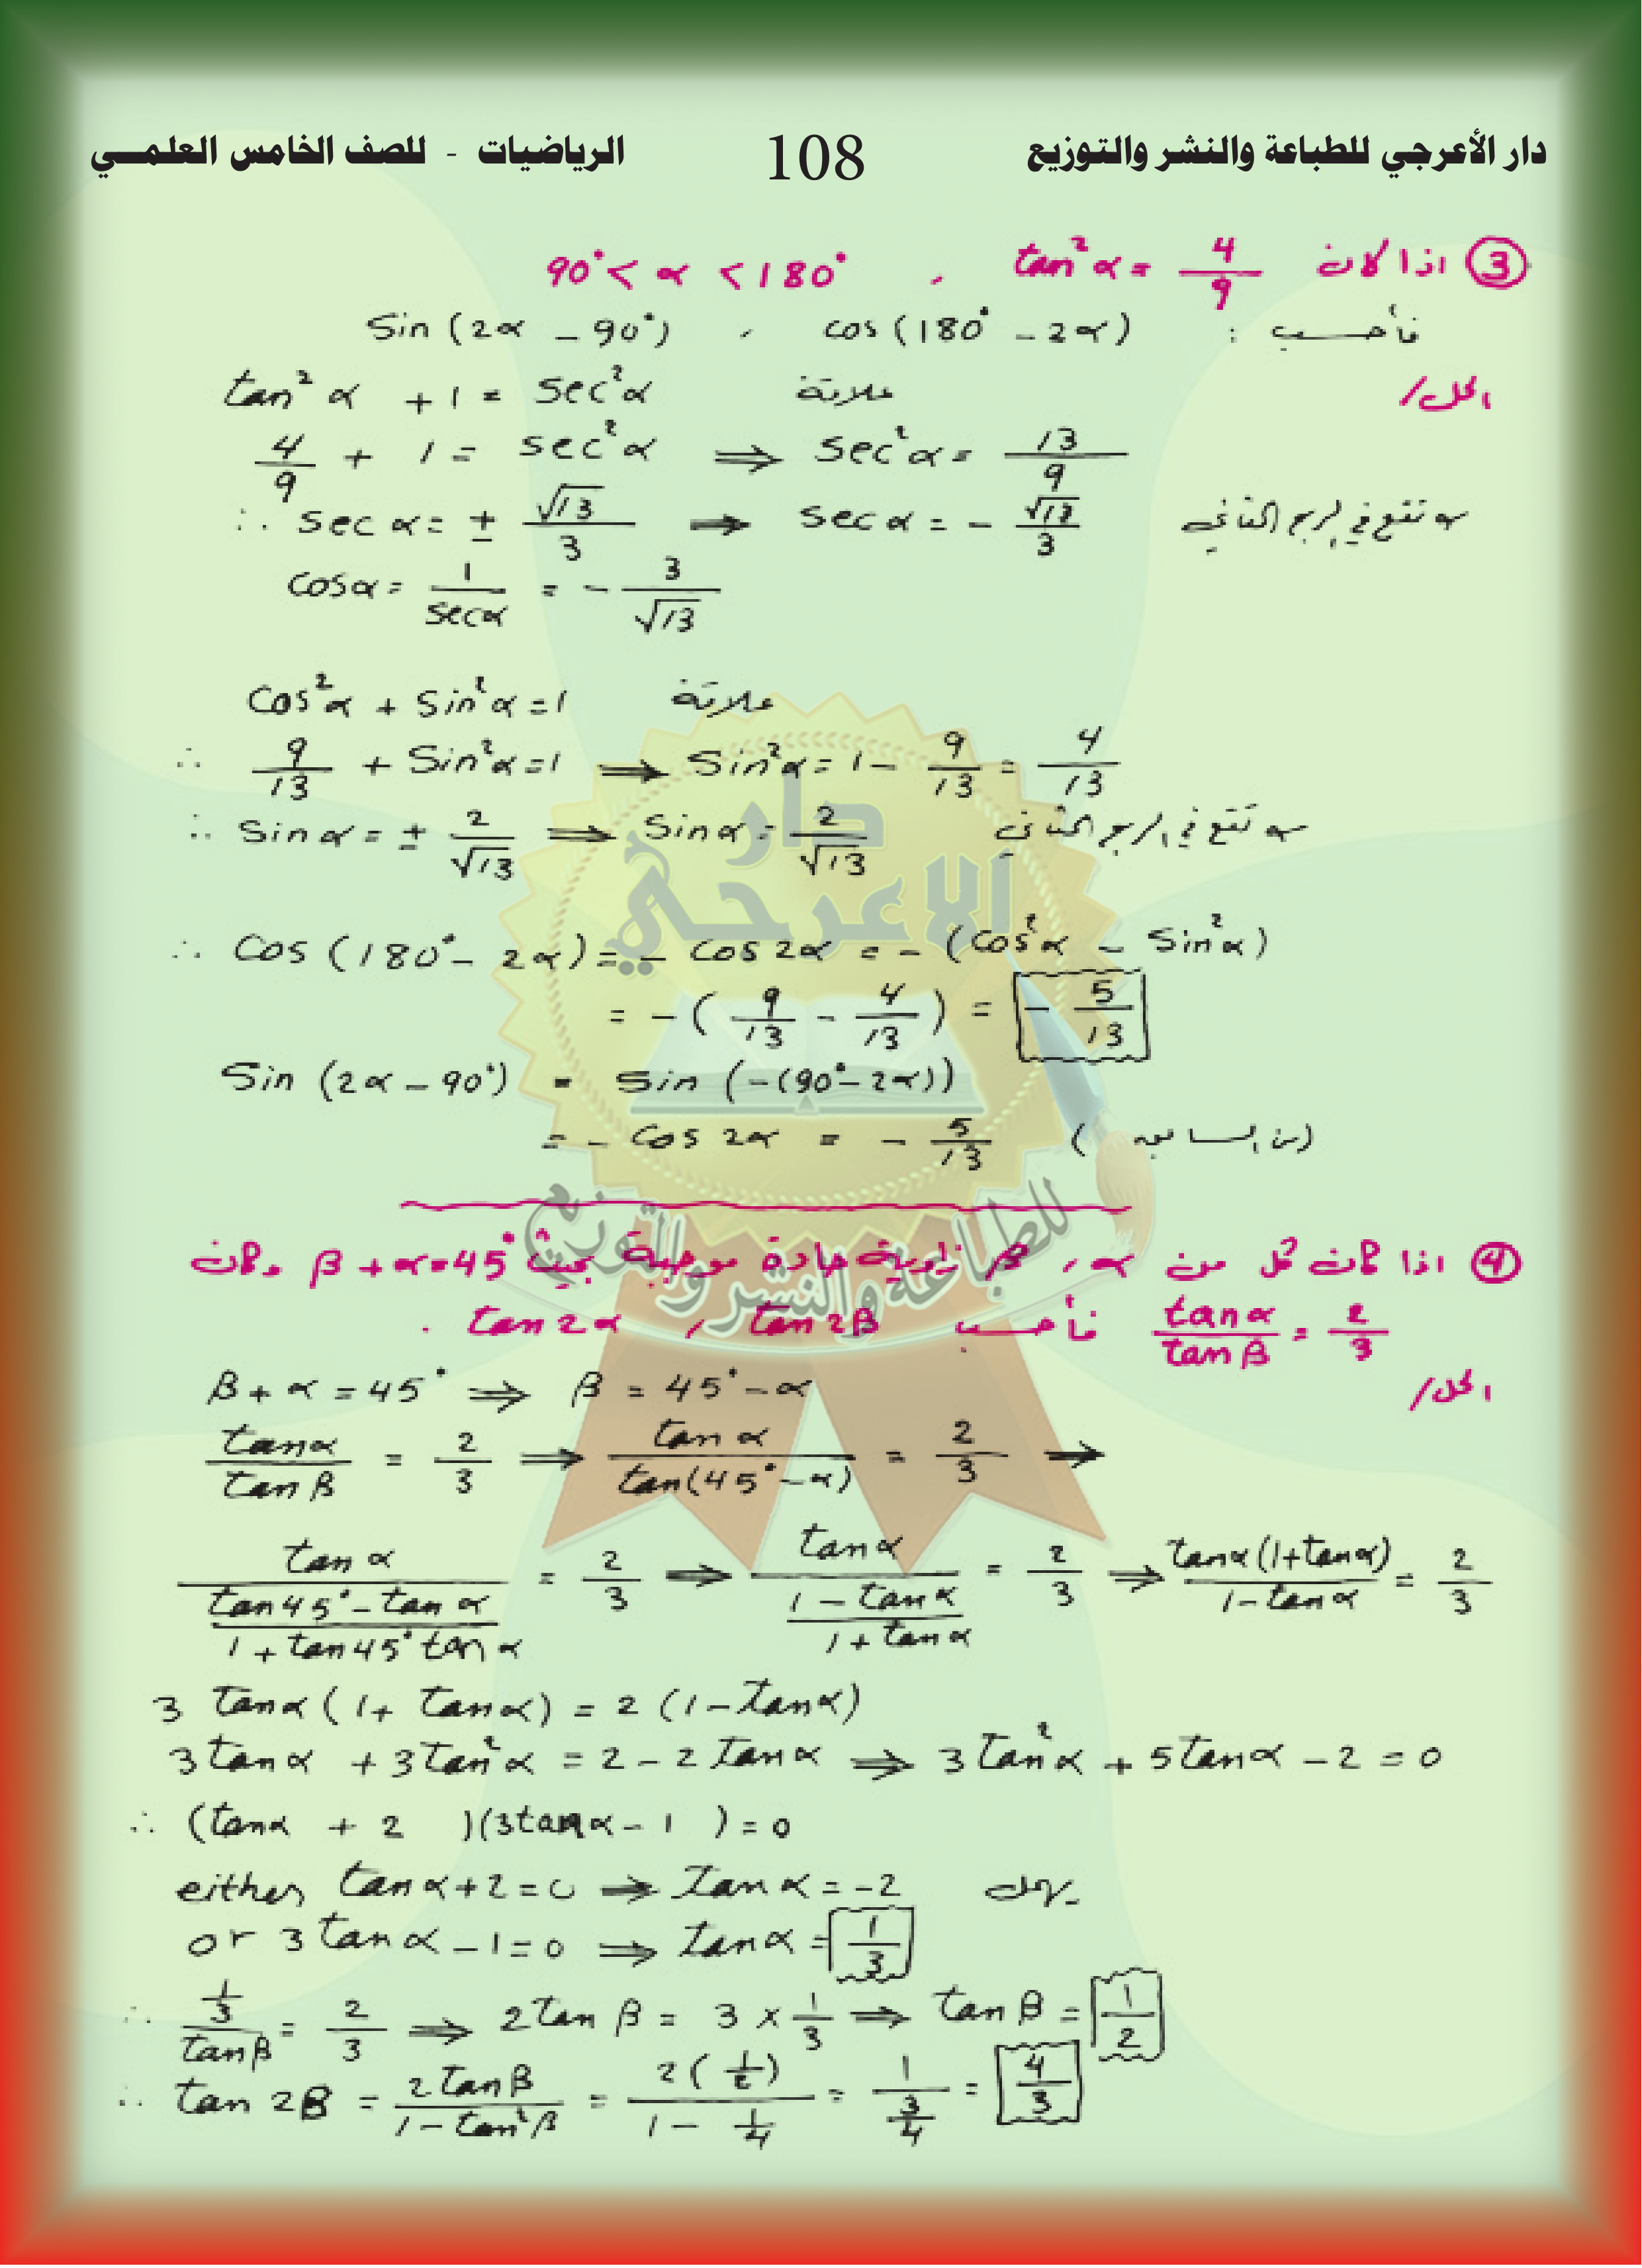 دار الأعرجي للطباعة والنشر والتوزيع 108 الرياضيات - للصف الخامس العلمـــي
③ اذا كان tan²α = 4/9 ، 90° < α < 180°
فأحسب : cos(180° - 2α) ، Sin(2α - 90°)
الحل/
tan²α + 1 = sec²α علاقة
4/9 + 1 = sec²α ⇒ sec²α = 13/9
∴ sec α = ± √13/3 ⇒ sec α = - √13/3 تقع في الربع الثاني
cosα = 1/secα = - 3/√13
cos²α + sin²α = 1 علاقة
∴ 9/13 + Sin²α = 1 ⇒ Sin²α = 1 - 9/13 = 4/13
∴ Sinα = ± 2/√13 ⇒ Sinα = 2/√13 تقع في الربع الثاني
∴ Cos(180° - 2α) = - cos2α = - (cos²α - Sin²α)
= - (9/13 - 4/13) = - 5/13
Sin(2α - 90°) = Sin(-(90° - 2α))
= - cos2α = - 5/13 (من السابق)
④ اذا كان كل من α ، β زاوية حادة موجبة بحيث β + α = 45° وكان
tanα/tanβ = 2/3 فأحسب tan2β ، tan2α .
الحل/
β + α = 45° ⇒ β = 45° - α
tanα/tanβ = 2/3 ⇒ tanα/tan(45° - α) = 2/3 ⇒
tanα/((tan45° - tanα)/(1 + tan45° tanα)) = 2/3 ⇒ tanα/((1 - tanα)/(1 + tanα)) = 2/3 ⇒ tanα(1 + tanα)/(1 - tanα) = 2/3
3 tanα(1 + tanα) = 2(1 - tanα)
3tanα + 3tan²α = 2 - 2tanα ⇒ 3tan²α + 5tanα - 2 = 0
∴ (tanα + 2)(3tanα - 1) = 0
either tanα + 2 = 0 ⇒ tanα = -2 يهمل
or 3tanα - 1 = 0 ⇒ tanα = 1/3
∴ (1/3)/tanβ = 2/3 ⇒ 2tanβ = 3 × 1/3 ⇒ tanβ = 1/2
∴ tan2β = 2tanβ/(1 - tan²β) = 2(1/2)/(1 - 1/4) = 1/(3/4) = 4/3
دار
الاعرجي
للطباعة والنشر والتوزيع